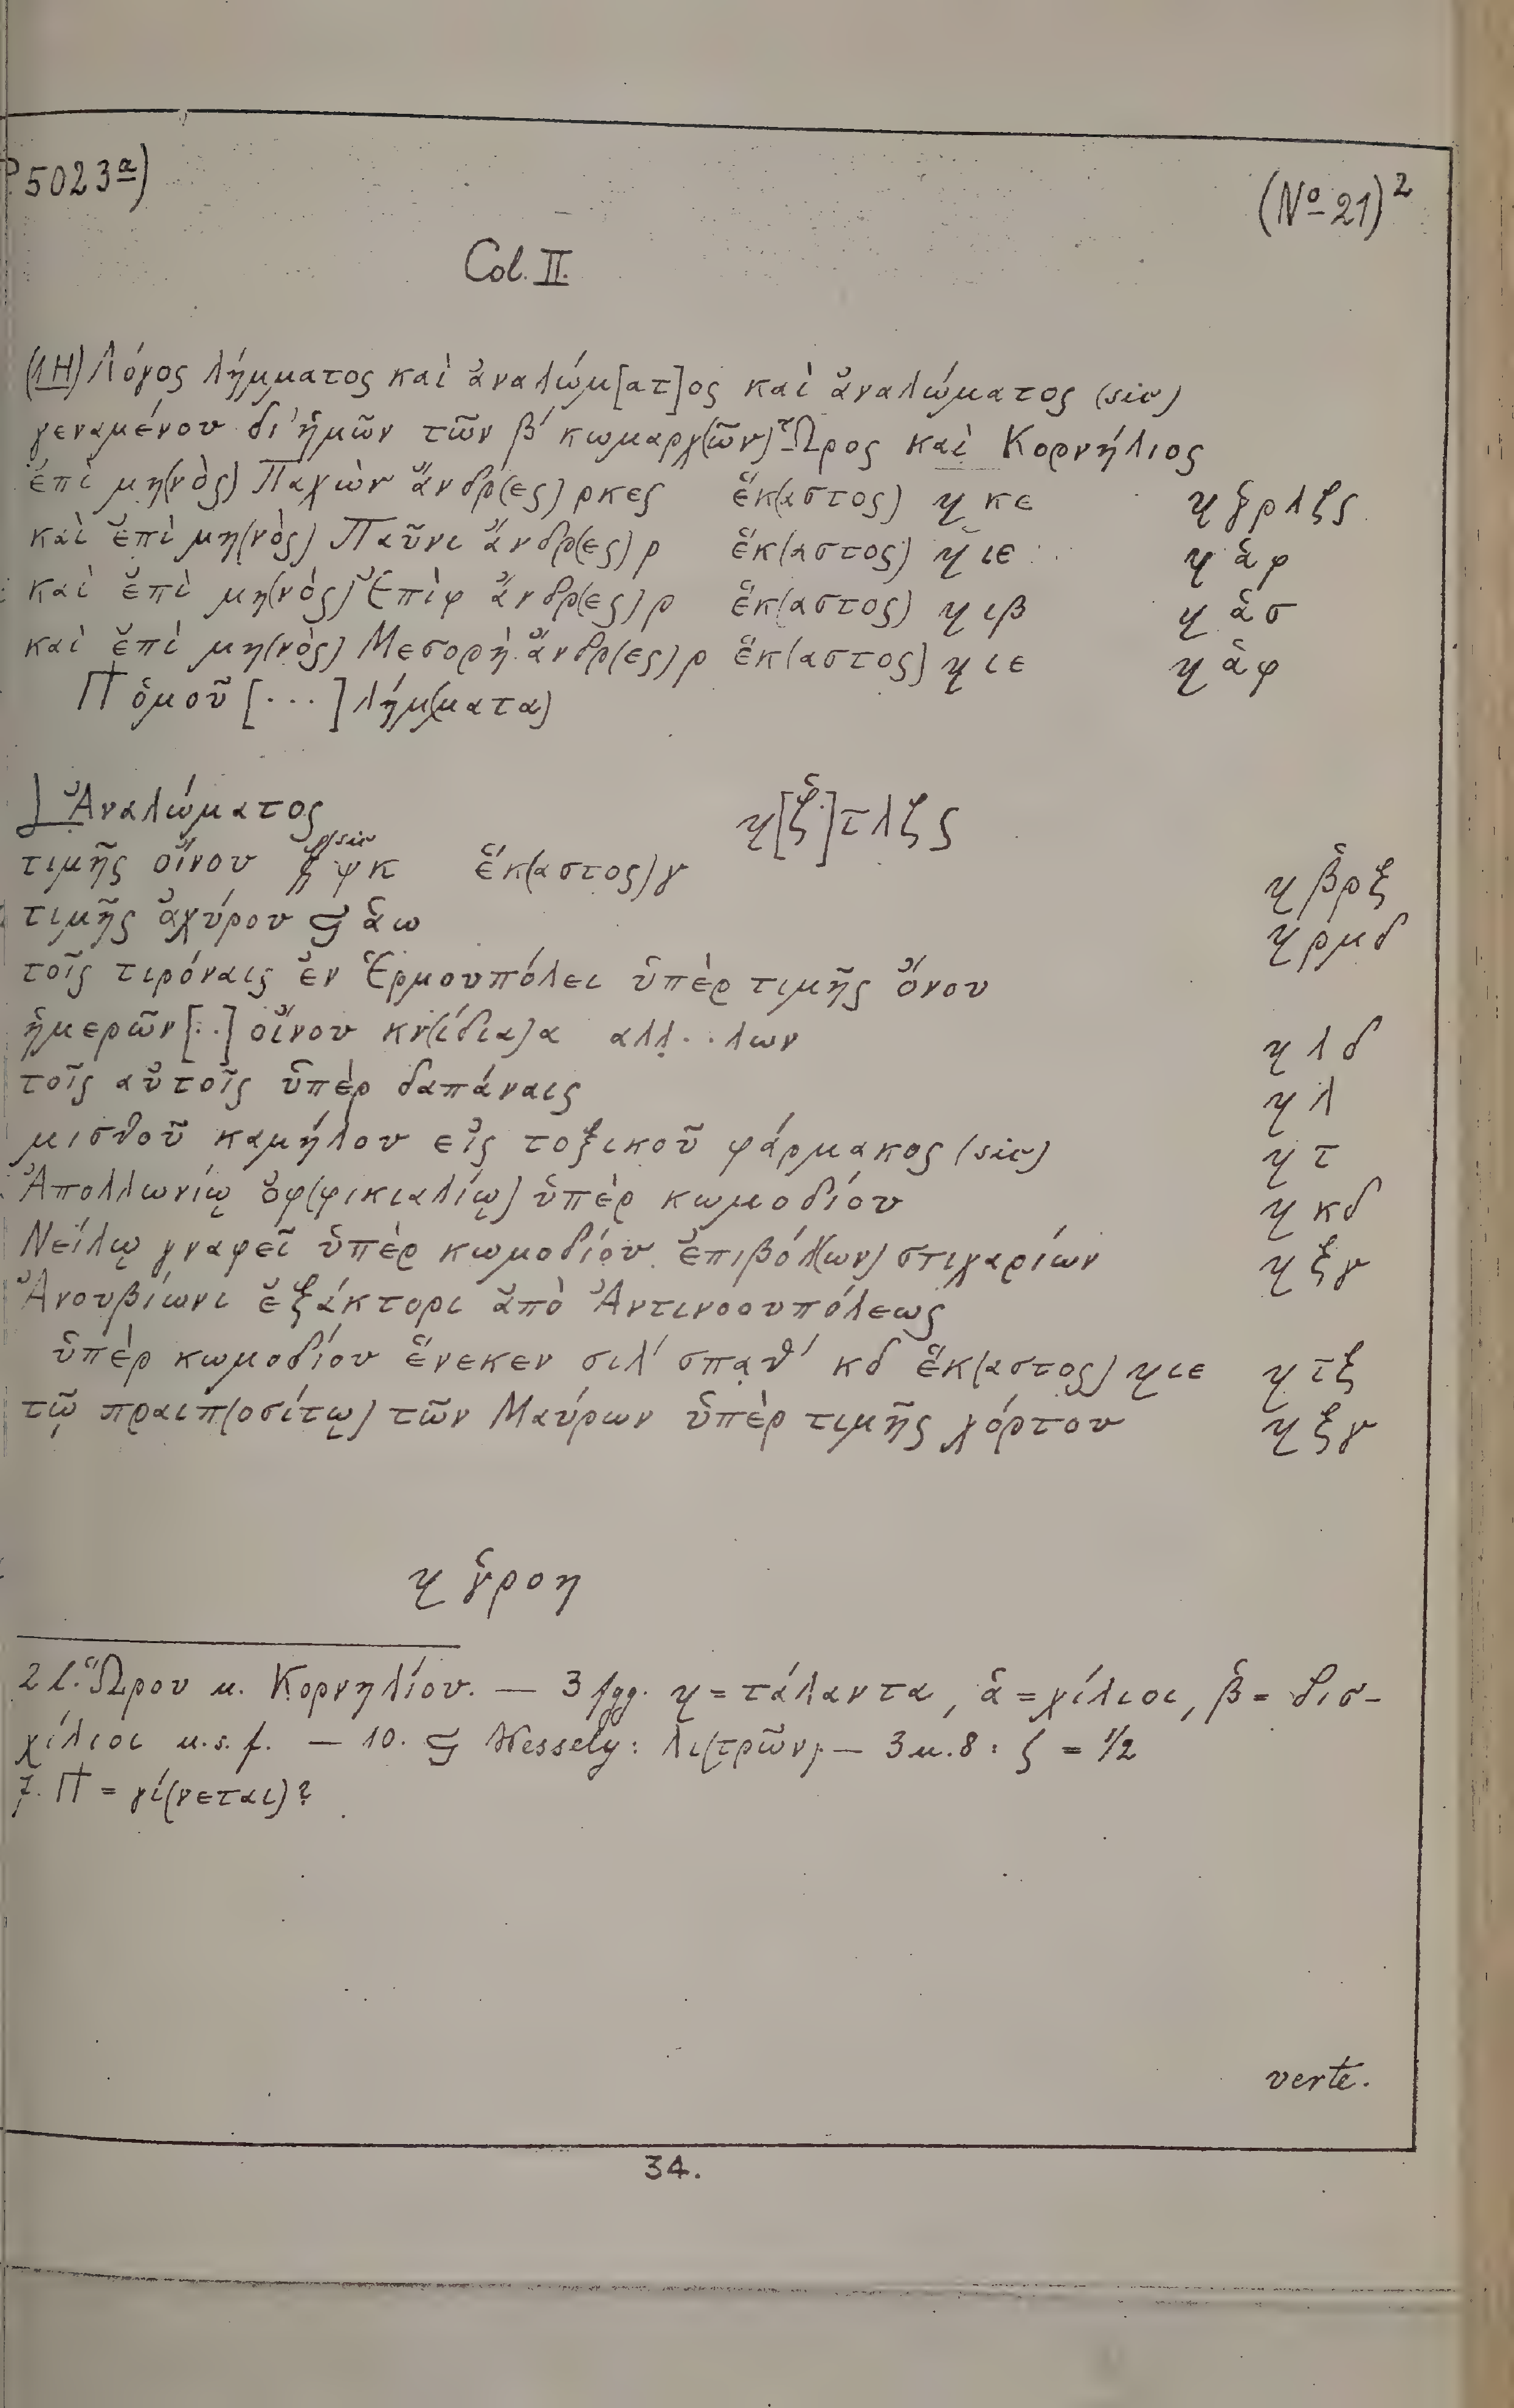 P 5023ᵃ)
(Nº 21)²
Col. II.
(1H) Λόγος λήμματος καὶ ἀναλώμ[ατ]ος καὶ ἀναλώματος (sic)
γεναμένου δι' ἡμῶν τῶν β' κωμαρχ(ῶν) Ὧρος καὶ Κορνήλιος
ἐπὶ μη(νὸς) Παχὼν ἄνδρ(ες) ρκεϛ ἕκ(αστος) ϥ κε ϥ γ̔ρλζϛ
καὶ ἐπὶ μη(νὸς) Παῦνι ἄνδρ(ες) ρ ἕκ(αστος) ϥ ιε ϥ ἁφ
καὶ ἐπὶ μη(νὸς) Ἐπὶφ ἄνδρ(ες) ρ ἕκ(αστος) ϥ ιβ ϥ ἁσ
καὶ ἐπὶ μη(νὸς) Μεσορὴ ἄνδρ(ες) ρ ἕκ(αστος) ϥ ιε ϥ ἁφ
Π ὁμοῦ [...] λήμ(ματα)
Ἀναλώματος ϥ[ζ̔]τλζϛ
τιμῆς οἴνου ψκ ἕκ(αστος) γ ϥ β̔ρξ
τιμῆς ἀχύρου ⲋ ἁω ϥ ρμδ
τοῖς τιρόναις ἐν Ἑρμουπόλει ὑπὲρ τιμῆς ὄνου
ἡμερῶν [..] οἴνου κν(ίδια) α αλλ..λων ϥ λδ
τοῖς αὐτοῖς ὑπὲρ δαπάναις ϥ λ
μισθοῦ καμήλου εἰς τοξικοῦ φάρμακος (sic) ϥ τ
Ἀπολλωνίῳ ὀφ(φικιαλίῳ) ὑπὲρ κωμοδίου ϥ κδ
Νείλῳ γναφεῖ ὑπὲρ κωμοδίου ἐπιβόλ(ων) στιχαρίων ϥ ξγ
Ἀνουβίωνι ἐξάκτορι ἀπὸ Ἀντινοουπόλεως
ὑπὲρ κωμοδίου ἕνεκεν σιλ' σπαθ' κδ ἕκ(αστος) ϥ ιε ϥ τξ
τῷ πραιπ(οσίτῳ) τῶν Μαύρων ὑπὲρ τιμῆς χόρτου ϥ ξγ
ϥ γ̔ροη
2 l. Ὥρου u. Κορνηλίου. — 3 fgg. ϥ = τάλαντα, ἁ = χίλιοι, β̔ = δισ-
χίλιοι u.s.f. — 10. ⲋ Wessely: λι(τρῶν) — 3 u. 8: ϛ = 1/2
7. Π = γί(νεται)?
verte.
34.